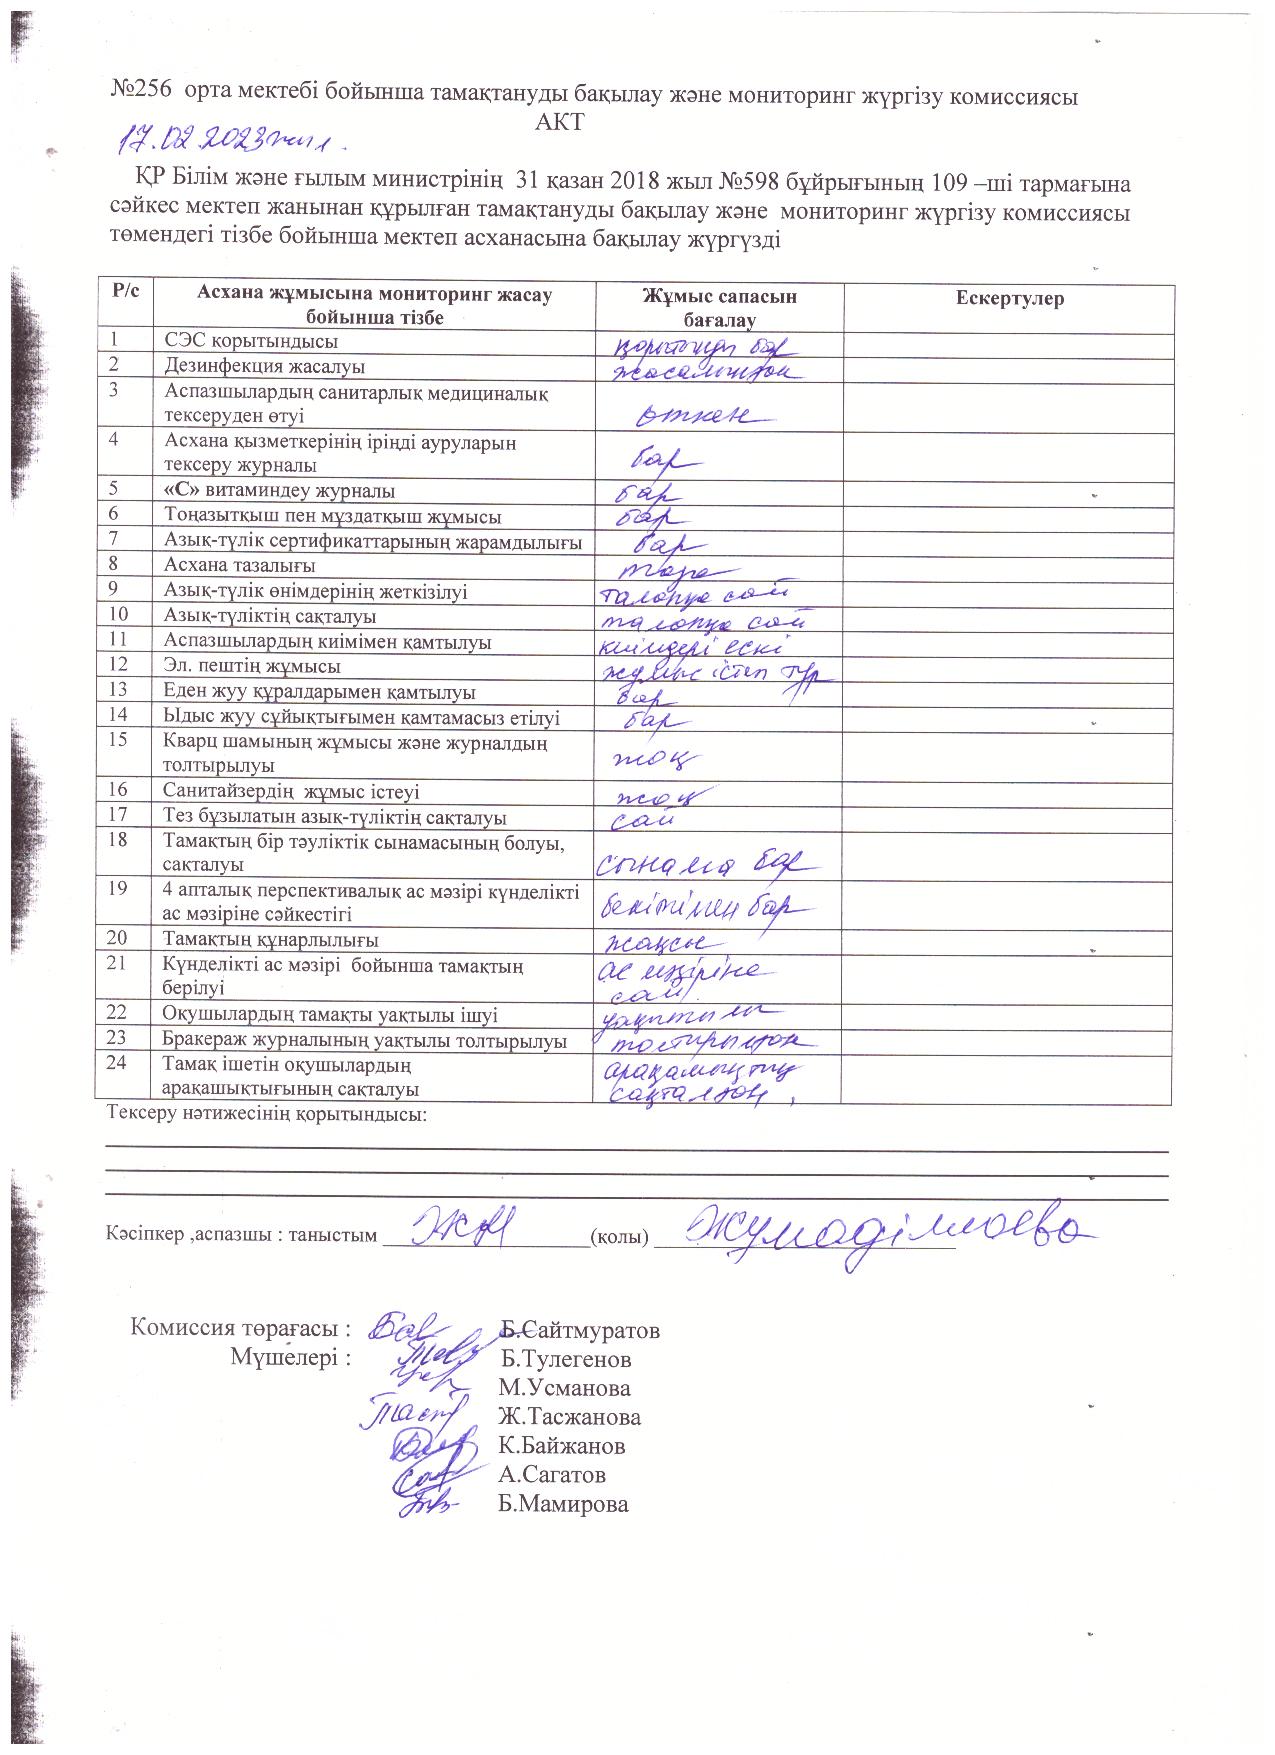 №256 орта мектебі бойынша тамақтануды бақылау және мониторинг жүргізу комиссиясы
АКТ
17.02.2023 жыл.
ҚР Білім және ғылым министрінің 31 қазан 2018 жыл №598 бұйрығының 109 –ші тармағына
сәйкес мектеп жанынан құрылған тамақтануды бақылау және мониторинг жүргізу комиссиясы
төмендегі тізбе бойынша мектеп асханасына бақылау жүргүзді
Р/с Асхана жұмысына мониторинг жасау Жұмыс сапасын Ескертулер
бойынша тізбе бағалау
1 СЭС қорытындысы қорытынды бар
2 Дезинфекция жасалуы жасалынған
3 Аспазшылардың санитарлық медициналық
тексеруден өтуі өткен
4 Асхана қызметкерінің іріңді ауруларын
тексеру журналы бар
5 «С» витаминдеу журналы бар
6 Тоңазытқыш пен мұздатқыш жұмысы бар
7 Азық-түлік сертификаттарының жарамдылығы бар
8 Асхана тазалығы таза
9 Азық-түлік өнімдерінің жеткізілуі талапқа сай
10 Азық-түліктің сақталуы талапқа сай
11 Аспазшылардың киімімен қамтылуы киімдері ескі
12 Эл. пештің жұмысы жұмыс істеп тұр
13 Еден жуу құралдарымен қамтылуы бар
14 Ыдыс жуу сұйықтығымен қамтамасыз етілуі бар
15 Кварц шамының жұмысы және журналдың
толтырылуы жоқ
16 Санитайзердің жұмыс істеуі жоқ
17 Тез бұзылатын азық-түліктің сақталуы сай
18 Тамақтың бір тәуліктік сынамасының болуы,
сақталуы сынама бар
19 4 апталық перспективалық ас мәзірі күнделікті
ас мәзіріне сәйкестігі бекітілген бар
20 Тамақтың құнарлылығы жақсы
21 Күнделікті ас мәзірі бойынша тамақтың ас мәзіріне
берілуі сай
22 Оқушылардың тамақты уақтылы ішуі уақытылы
23 Бракераж журналының уақтылы толтырылуы толтырылған
24 Тамақ ішетін оқушылардың арақашықтық
арақашықтығының сақталуы сақталған,
Тексеру нәтижесінің қорытындысы:
Кәсіпкер ,аспазшы : таныстым (колы) Жумаділлаева
Комиссия төрағасы : Б.Сайтмуратов
Мүшелері : Б.Тулегенов
М.Усманова
Ж.Тасжанова
К.Байжанов
А.Сагатов
Б.Мамирова